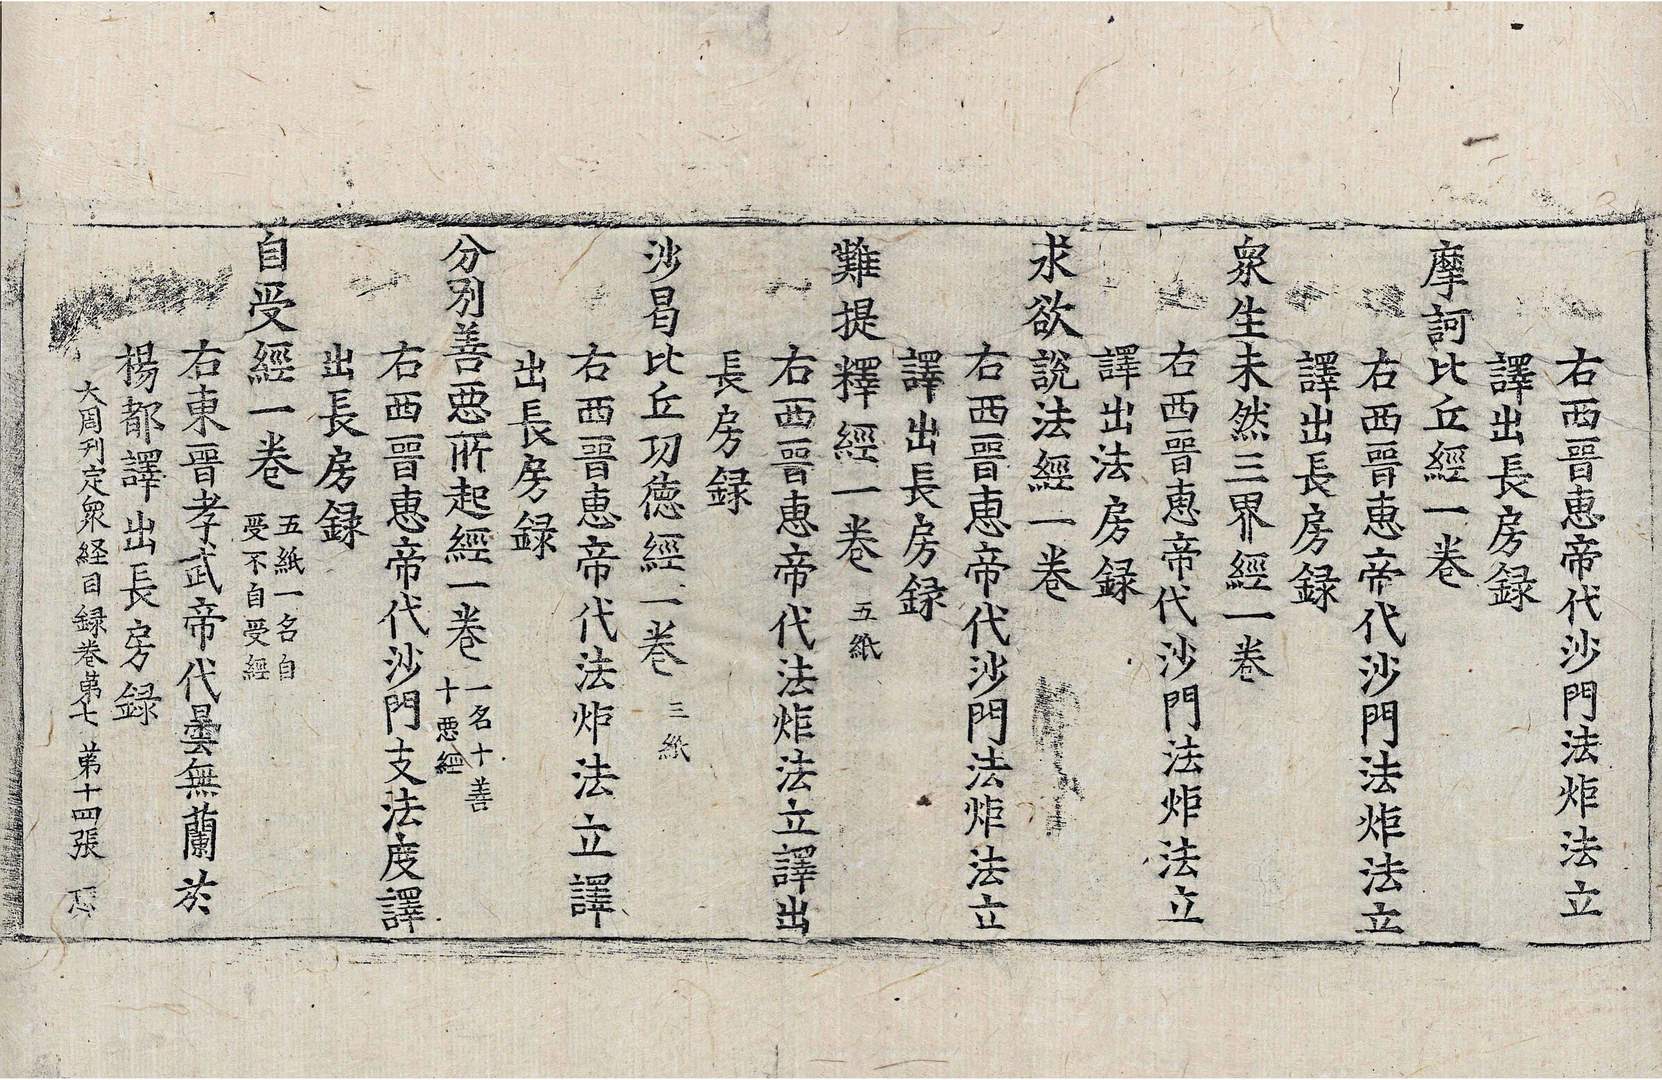 右西晉惠帝代沙門法炬法立
譯出長房録
摩訶比丘經一卷
右西晉惠帝代沙門法炬法立
譯出長房録
衆生未然三界經一卷
右西晉惠帝代沙門法炬法立
譯出法房録
求欲說法經一卷
右西晉惠帝代沙門法炬法立
譯出長房録
難提釋經一卷 五紙
右西晉惠帝代法炬法立譯出
長房録
沙曷比丘功德經一卷 三紙
右西晉惠帝代法炬法立譯
出長房録
分別善惡所起經一卷 一名十善
十惡經
右西晉惠帝代沙門支法度譯
出長房録
自受經一卷 五紙一名自
受不自受經
右東晉孝武帝代曇無蘭於
楊都譯出長房録
大周刊定衆経目録卷第七 第十四張